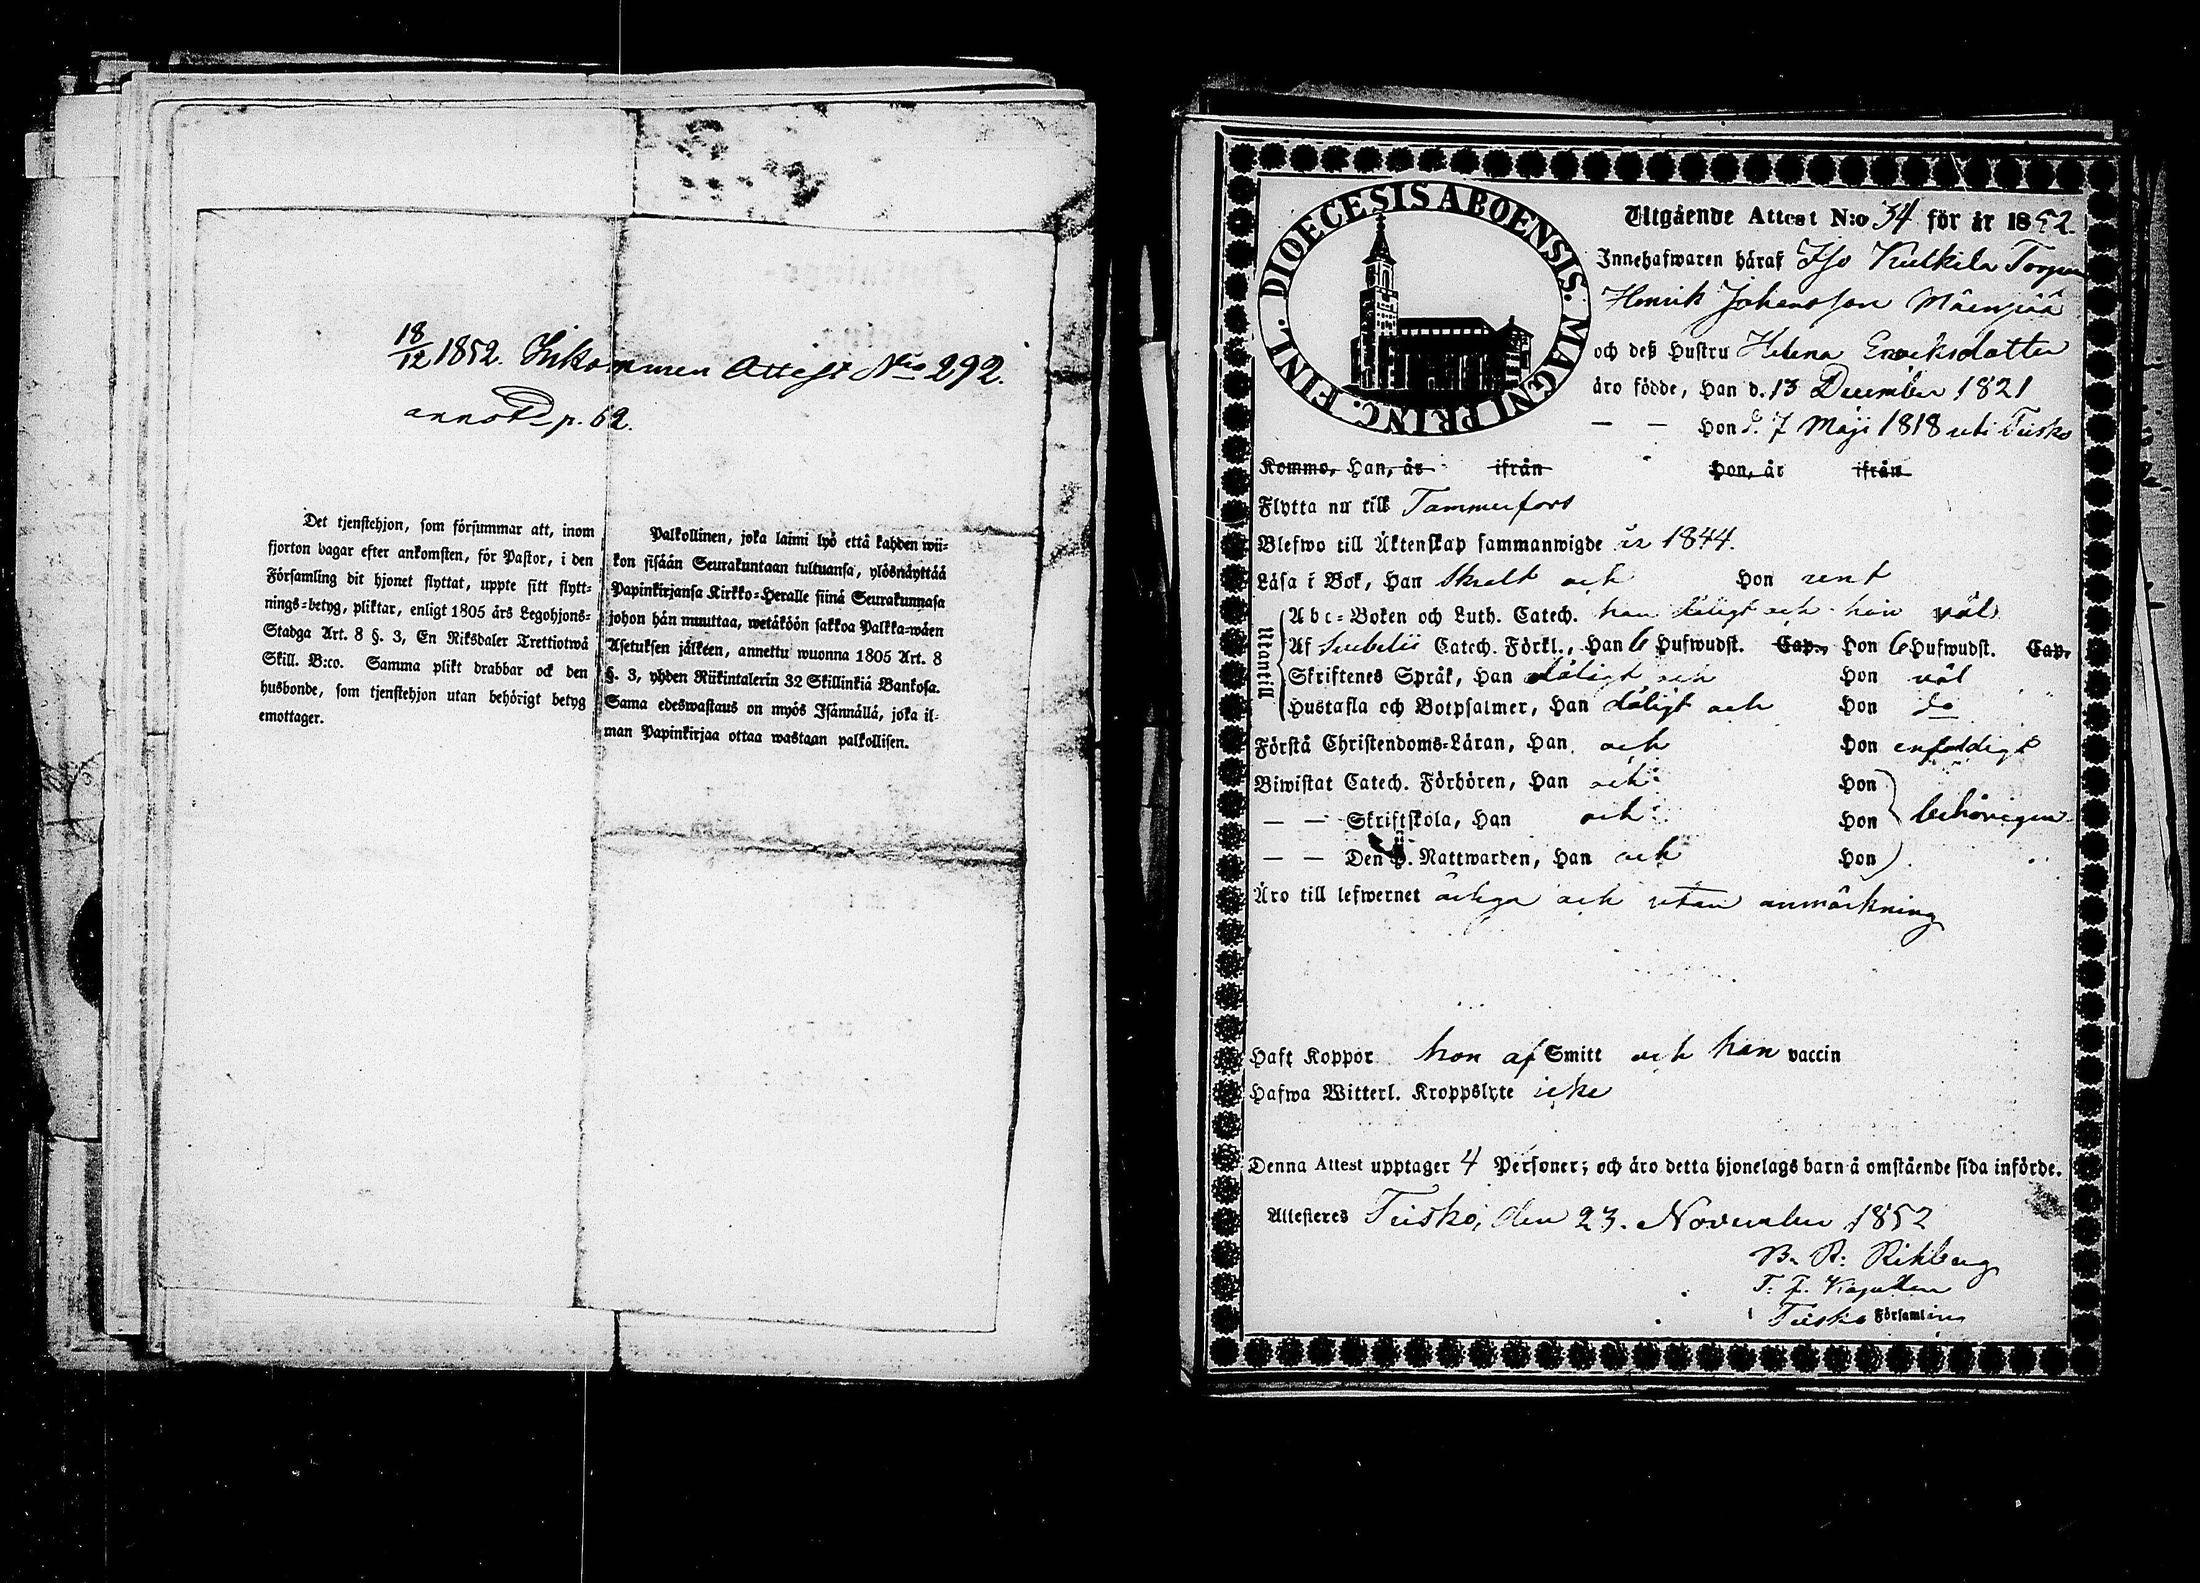 18/12 1852. Inkommen Attest N:o 292.
annot. p. 62.
Det tjenstehjon, som försummar att, inom
fjorton dagar efter ankomsten, för Pastor, i den
Församling dit hjonet flyttat, uppte sitt flytt-
nings-betyg, pliktar, enligt 1805 års Legohjons-
Stadga Art. 8 §. 3, En Riksdaler Trettiotwå
Skill. B:co. Samma plikt drabbar ock den
husbonde, som tjenstehjon utan behörigt betyg
emottager.
Palkollinen, joka laimi lyö että kahden wii-
kon sisään Seurakuntaan tultuansa, ylösnäyttää
Papinkirjansa Kirkko-Heralle siinä Seurakunnasa
johon hän muuttaa, wetäköön sakkoa Palkka-wäen
Asetuksen jälkeen, annettu wuonna 1805 Art. 8
§. 3, yhden Riikintalerin 32 Skillinkiä Bankosa.
Sama edeswastaus on myös Isännällä, joka il-
man Papinkirjaa ottaa wastaan palkollisen.
DIOECESIS ABOENSIS. MAGNI PRINC. FINL.
Utgående Attest N:o 34 för år 1852.
Innehafwaren häraf Iso Kulkila Torpare
Henrik Johansson Mäenpää
och deß Hustru Helena Ericksdotter
äro födde, Han d. 13 December 1821
— — Hon d. 7 Maji 1818 uti Teisko
Kommo, Han, år ifrån Hon, år ifrån
Flytta nu till Tammerfors
Blefwo till Äktenskap sammanwigde år 1844.
Läsa i Bok, Han skralt och Hon rent
Utantill
Abc-Boken och Luth. Catech. han dåligt och hon väl
Af Svebelii Catech. Förkl., Han 6 Hufwudst. Cap., Hon 6 Hufwudst. Cap.
Skriftenes Språk, Han dåligt och Hon väl
Hustafla och Botpsalmer, Han dåligt och Hon do
Förstå Christendoms-Läran, Han och Hon enfaldigt
Biwistat Catech. Förhören, Han och Hon
— — Skriftskola, Han och Hon behörigen
— — Den H. Nattwarden, Han och Hon
Äro till lefwernet ärliga och utan anmärkning
Haft Koppor hon af Smitt och han vaccin
Hafwa Witterl. Kroppslyte icke
Denna Attest upptager 4 Personer; och äro detta hjonelags barn å omstående sida införde.
Attesteres Teisko, den 23. November 1852
B. R: Rikberg
T. f. Kapellan
i Teisko Församling